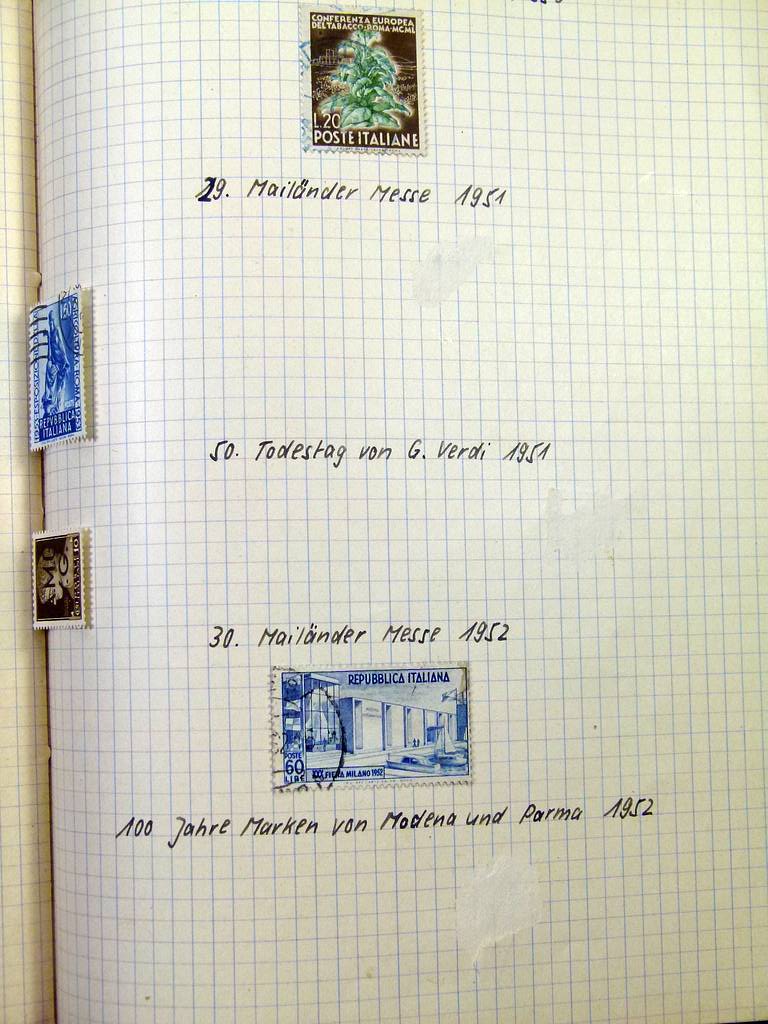 CONFERENZA EUROPEA
DEL TABACCO·ROMA·MCML
L.20
POSTE ITALIANE
29. Mailänder Messe 1951
REPVBBLICA
ITALIANA
50. Todestag von G. Verdi 1951
30. Mailänder Messe 1952
REPUBBLICA ITALIANA
POSTE
60
LIRE
XXX FIERA MILANO 1952
100 Jahre Marken von Modena und Parma 1952